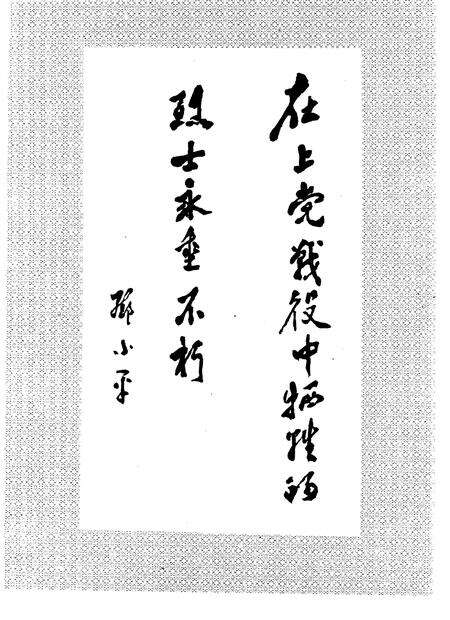 在上党战役中牺牲的
烈士永垂不朽
邓小平